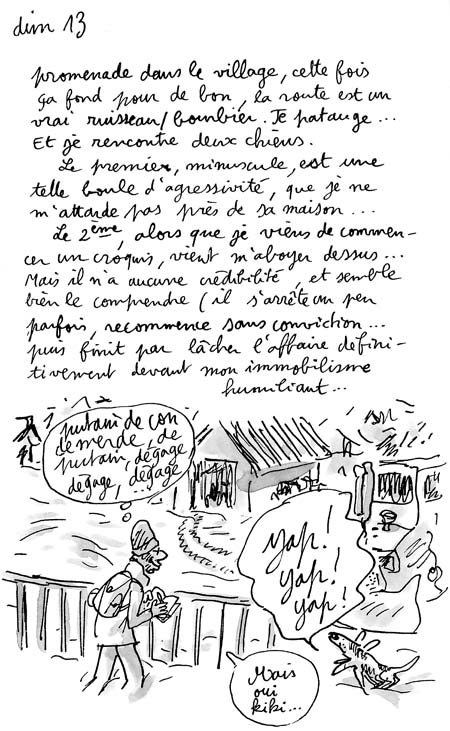 dim 13
promenade dans le village, cette fois
ça fond pour de bon, la route est un
vrai ruisseau/bourbier. Je patauge...
Et je rencontre deux chiens.
Le premier, minuscule, est une
telle boule d'agressivité, que je ne
m'attarde pas près de sa maison...
Le 2ème, alors que je viens de commen-
cer un croquis, vient m'aboyer dessus...
Mais il n'a aucune crédibilité, et semble
bien le comprendre (il s'arrête un peu
parfois, recommence sans conviction...
puis finit par lâcher l'affaire défini-
tivement devant mon immobilisme
humiliant...
putain de con
de merde, de
putain, dégage
dégage, dégage
...
yap!
yap!
yap!
Mais
oui
kiki...